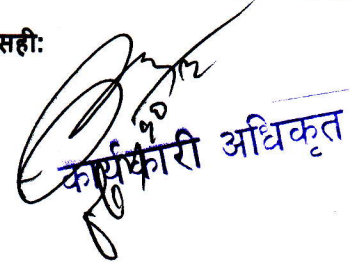 सही:
कार्यकारी अधिकृत